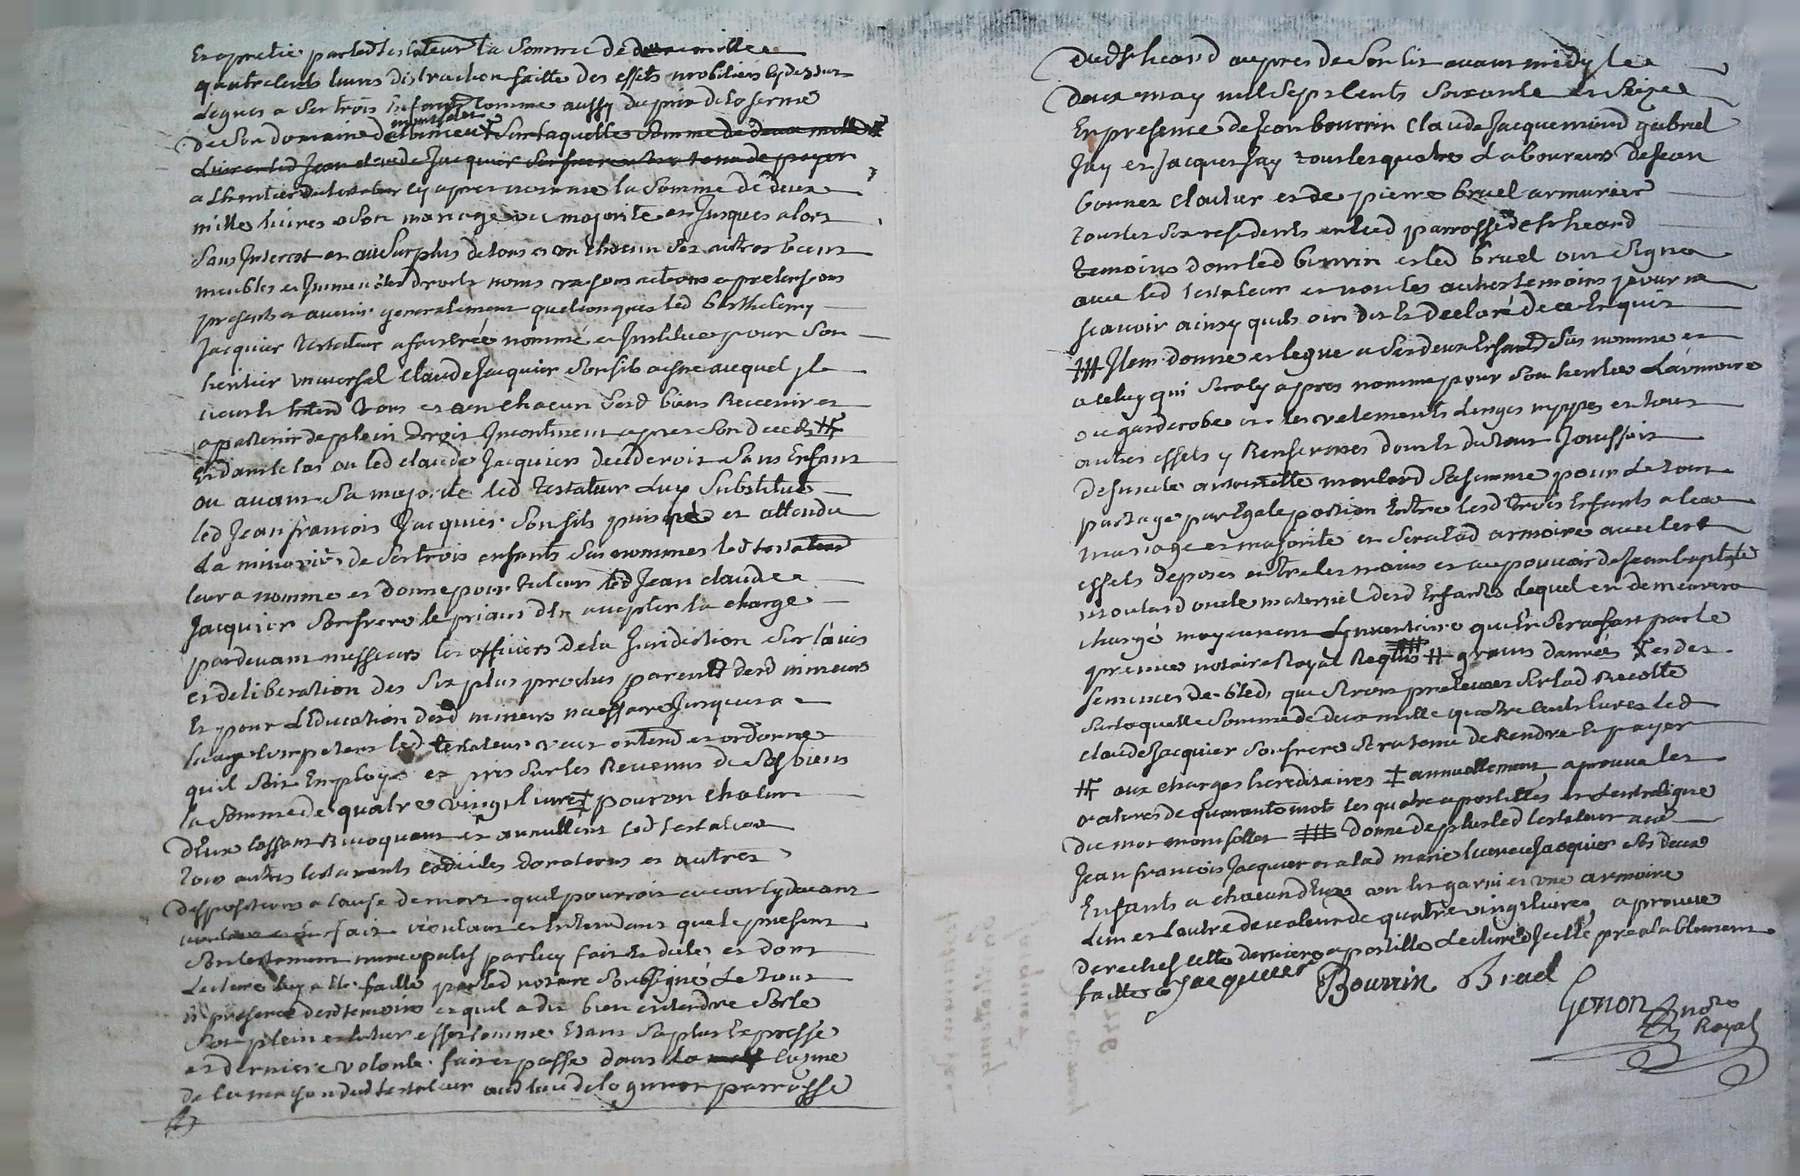 par led testateur la somme de deux mille
quatre cents livres distraction faitte des effets mobiliers cy dessus
legues a ses trois Enfants comme aussy du prix de la ferme
monfollet
de son domaine de sur laquelle somme de deux mille
Livres led Jean claude Jacquier son frere sera tenu de payer
a Lheritier du testateur cy apres nomme la somme de deux
mille livres a son mariage ou majorite et Jusques alors
sans Interest et au surplus de tous et un chacun ses autres biens
meubles et Immeubles droits noms raisons actions et pretensions
presents et avenir generalement quelconques led barthelemy
Jacquier testateur a fait créé nommé et Institue pour son
heritier universel Claude Jacquier son fils aisne auquel Il
veut Intend tous et un chacun sesd biens Revenir et
appartenir de plein droit Incontinent apres son deces #
Et dans le cas ou led claude Jacquier decederoit sans Enfants
ou avant sa majorite led testateur luy substitue
led Jean francois Jacquier son fils puisqué et attendu
La minorité de ses trois enfants sus nommes led testateur
leur a nomme et donne pour tuteur led Jean claude
Jacquier son frere le priant d'En accepter la charge
pardevant messieurs les officiers de la Juridiction sur l'avis
et deliberation des six plus proches parents desd mineurs
Et pour L'Education desd mineurs necessaire Jusques a
l'age competent led testateur veut entend et ordonne
quil soit Employe et pris sur les Revenus de ses biens
la somme de quatre vingt livres ‡ pour un chacun
d'Eux cassant Revoquant et annullant led testateur
tous autres testaments codiciles donations et autres
dispositions a cause de mort quil pourroit avoir cy devant
fait voulant et Entendant que le present
son testament nuncupatif par luy fait et dicté et dont
Lecture luy a ete faitte par led notaire soussigné Le tout
en presence desd temoins et quil a dit bien entendre sorte
son plein et entier effet comme Etant sa plus Expresse
et derniere volonte fait et passe dans la cuisine
de la maison dud testateur aud lieu de parroisse
dud St heand aupres de son lit avant midy le
deux may mil sept cents soixante et seize
En presence de Jean bourrin Claude Jacquemond gabriel
Jay et Jacques Jay tous les quatre Laboureurs de Jean
bornes et de pierre bruel armurier
tous les six residents en lad parroisse de St heand
temoins dont led burrin et led bruel ont signe
avec led testateur et non les autres temoins pour ne
scavoir ainsy quils ont dit et declaré de ce Enquis
### Item donne et legue a ses deux Enfants sus nomme et
a celuy qui sera cy apres nomme pour son heritier L'armoire
ou garderobe et les vetements Linges nyppes et tous
autres effets y Renfermes dont et du tout Joüissoit
defunte antoinette moulard sa femme pour Le tout
partagé par Egale portion Entre lesd trois Enfants a leur
mariage et majorite et sera lad armoire avec les
effets deposes entre les mains et au pouvoir de Jean baptiste
moulard oncle maternel desd Enfants Lequel en demeurera
chargé moyennant Linventaire qui En sera fait par le
premier notaire Royal Requis # grains danrées et des
semences de bled, qui seront prelevees sur lad Recolte
sur laquelle somme de deux mille quatre cents livres led
claude Jacquier son frere sera tenu de Rendre et payer
# aux charges hereditaires ‡ annuellement aprouve les
ratures de quarante mot les quatre apostilles et Lentreligne
du mot monfollet ### donne de plus led testateur aud
Jean francois Jacquier et a lad marie lucrece Jacquier ses deux
Enfants a chacun d'Eux un lit garni et une armoire
Lun et lautre de valeur de quatre vingt livres, aprouve
derechef cette derniere apostille Lecture d'Icelle prealablement
faitte Jacquier Bourrin Bruel
Genon no.re
Royal